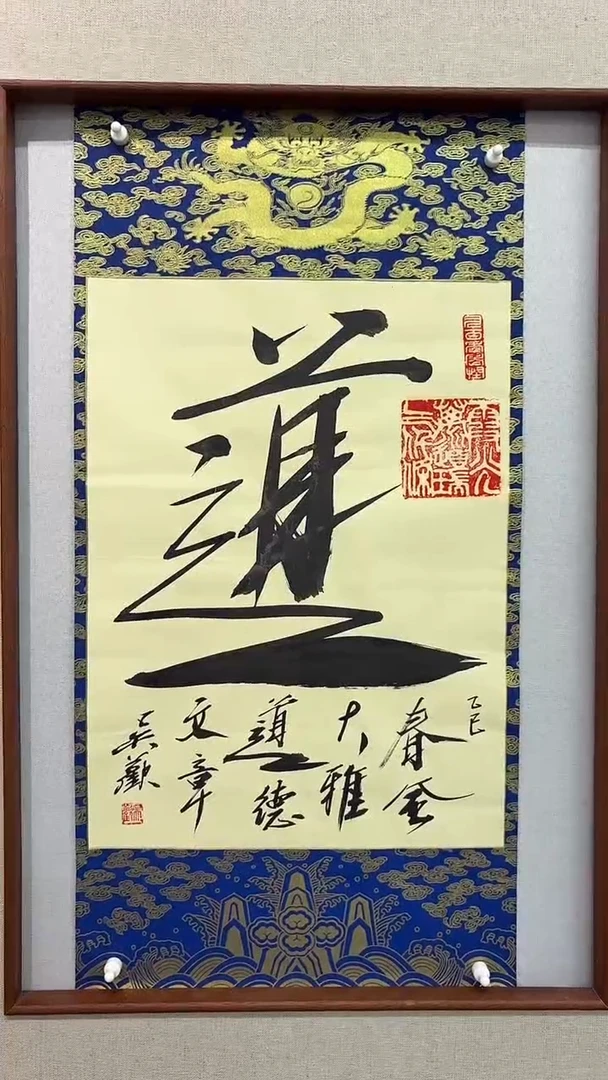 道
乙巳
春金
大雅
道德
文章
吴歡